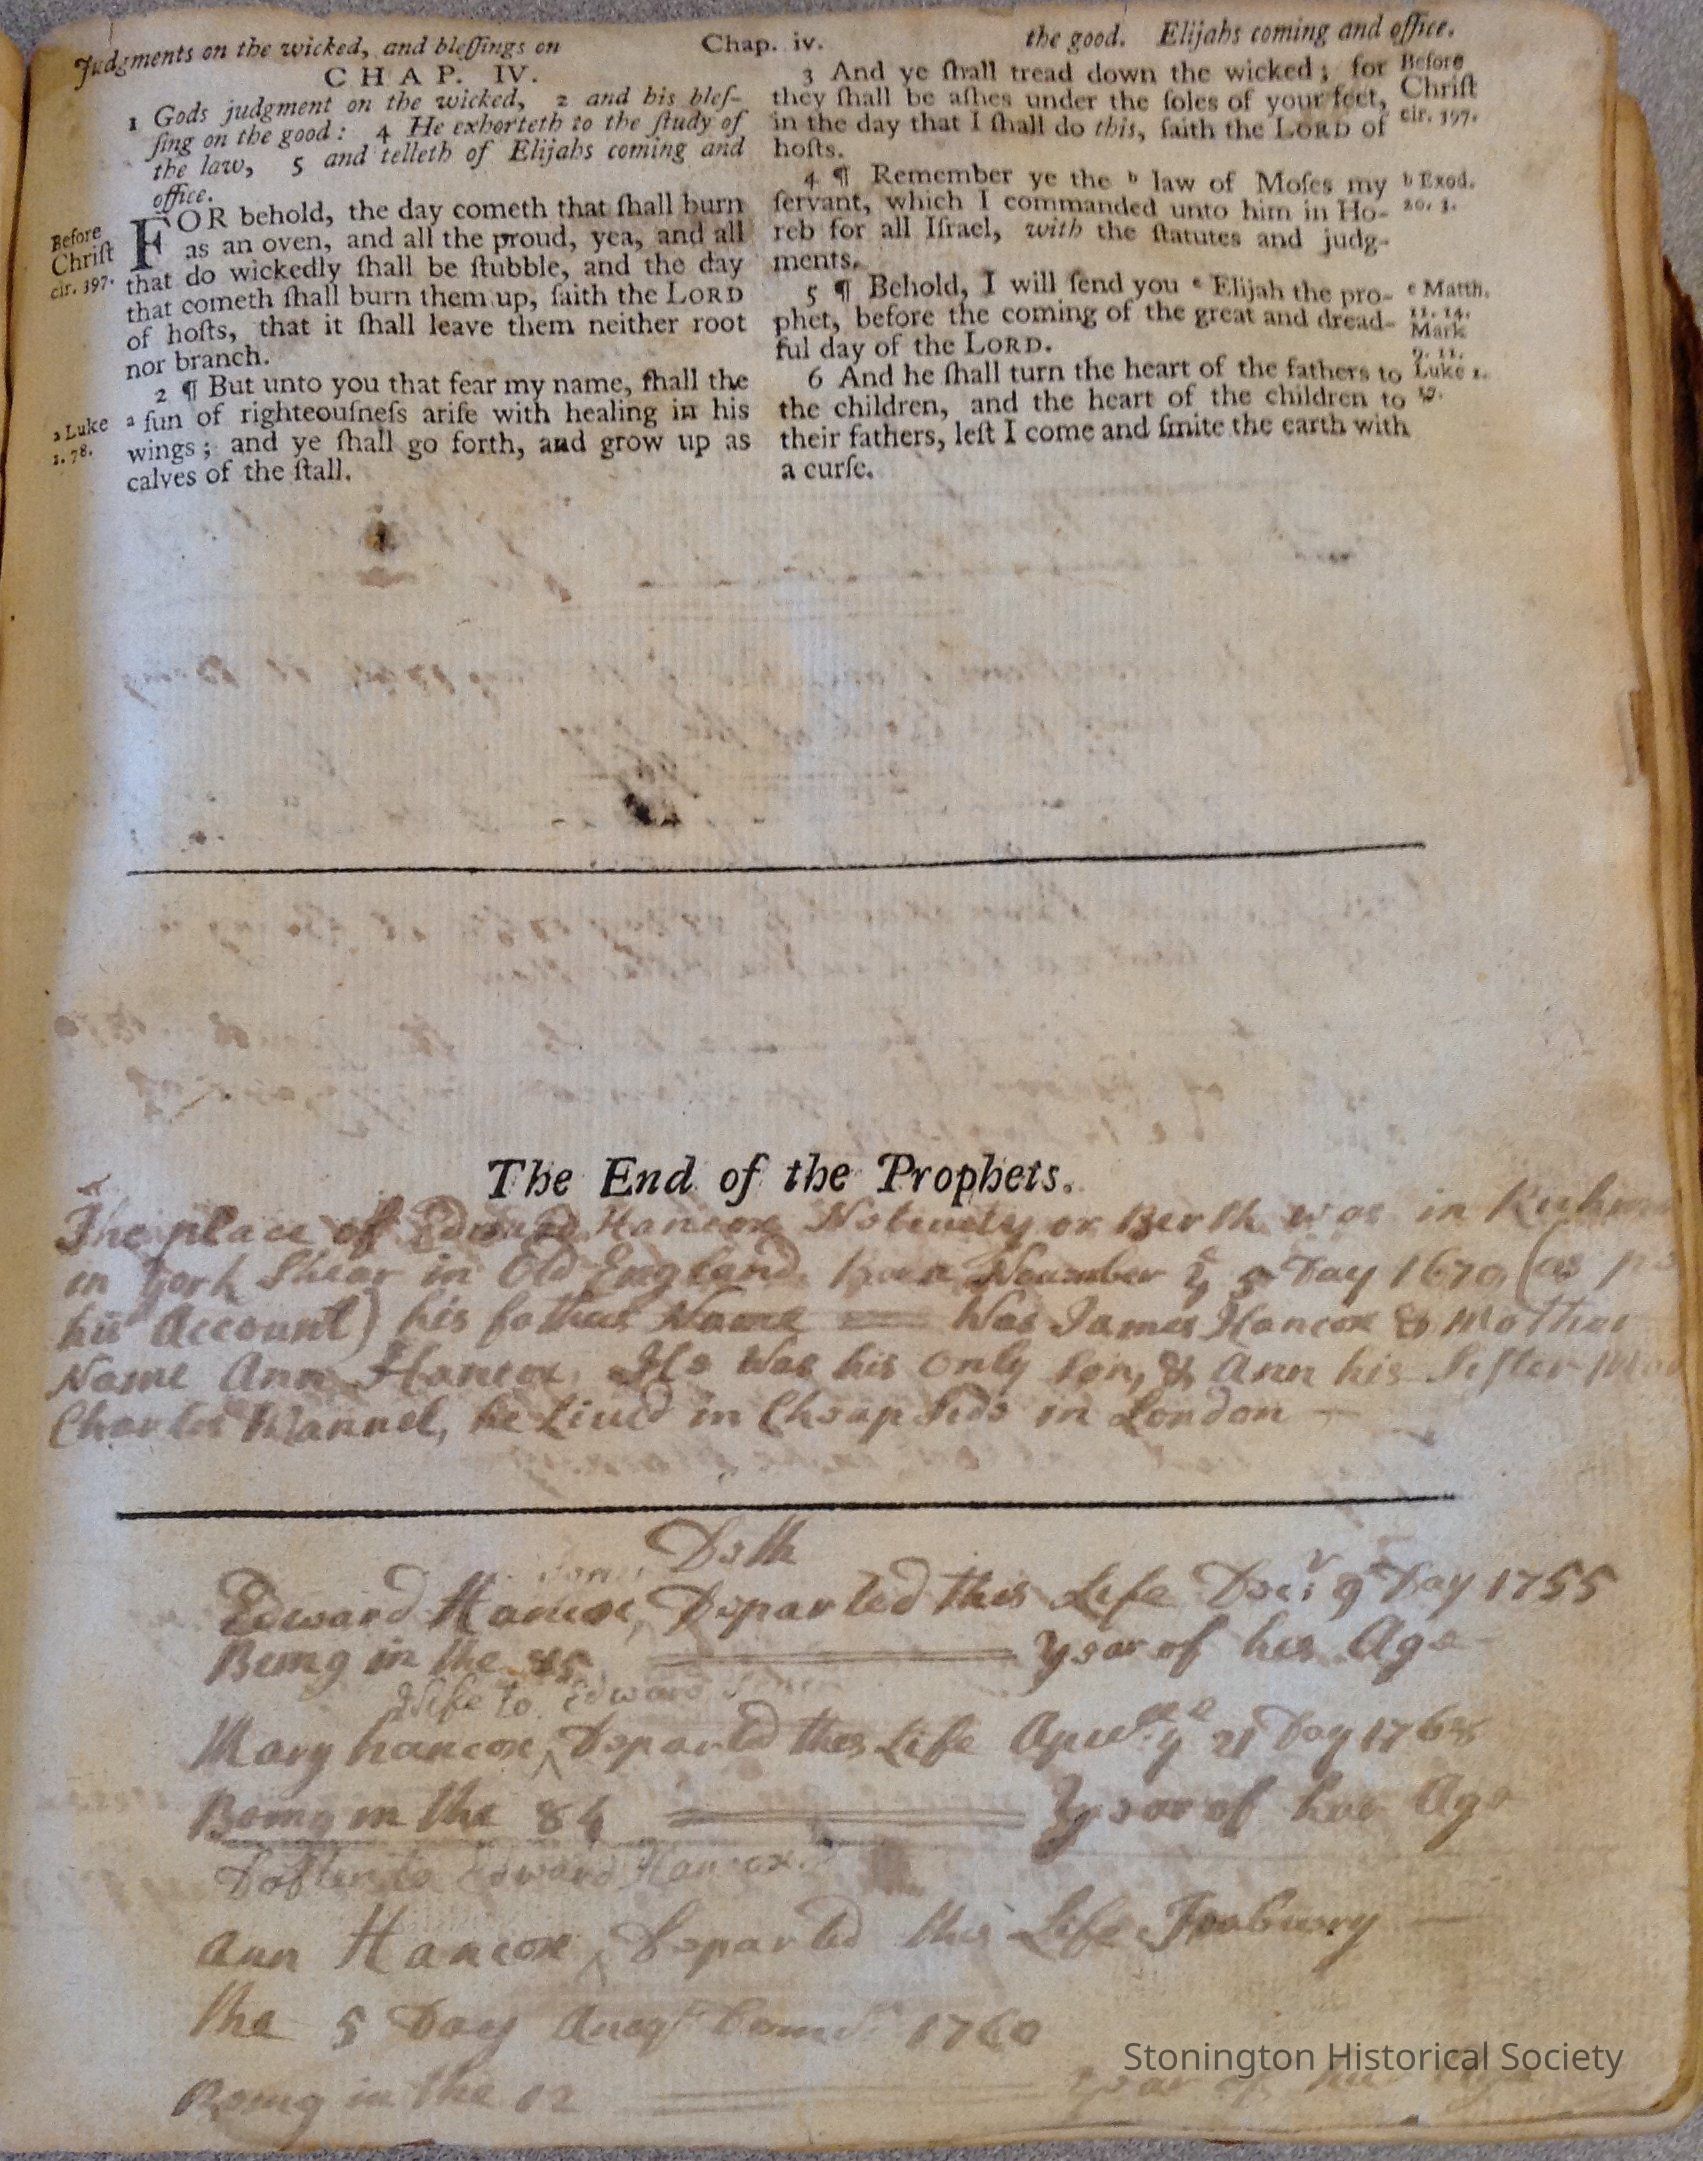 Judgments on the wicked, and bleſſings on
Chap. iv.
the good. Elijahs coming and office.
CHAP. IV.
1 Gods judgment on the wicked, 2 and his bleſ-
ſing on the good: 4 He exhorteth to the ſtudy of
the law, 5 and telleth of Elijahs coming and
office.
Before
Chriſt
cir. 397.
FOR behold, the day cometh that ſhall burn
as an oven, and all the proud, yea, and all
that do wickedly ſhall be ſtubble, and the day
that cometh ſhall burn them up, ſaith the LORD
of hoſts, that it ſhall leave them neither root
nor branch.
2 ¶ But unto you that fear my name, ſhall the
a Luke
1. 78.
a ſun of righteouſneſs ariſe with healing in his
wings; and ye ſhall go forth, and grow up as
calves of the ſtall.
3 And ye ſhall tread down the wicked; for
they ſhall be aſhes under the ſoles of your feet,
in the day that I ſhall do this, ſaith the LORD of
hoſts.
Before
Chriſt
cir. 397.
4 ¶ Remember ye the b law of Moſes my
ſervant, which I commanded unto him in Ho-
reb for all Iſrael, with the ſtatutes and judg-
ments.
b Exod.
20. 3.
5 ¶ Behold, I will ſend you c Elijah the pro-
phet, before the coming of the great and dread-
ful day of the LORD.
c Matth.
11. 14.
Mark
9. 11.
Luke 1.
17.
6 And he ſhall turn the heart of the fathers to
the children, and the heart of the children to
their fathers, leſt I come and ſmite the earth with
a curſe.
The End of the Prophets.
The place of Edward Hancox Notivety or Berth was in
in York Shear in Old England, born November ye 5 Day 1670 (as
his Account) his father Name == Was James Hancox & Mother
Name Ann Hancox, He Was his only Son, & Ann his Sister
Charles Wannel, he Lived in Cheap Side in London —
Deth
Edward Hancox, Departed this Life Decr 9 Day 1755
Being in the 85 == Year of his Age
Wife to Edward
Mary hancox ^ Departed this Life ye 21 Day 1768
Being in the 84 == Year of her Age
Dafter to Edward Hancox
Ann Hancox ^ Departed this Life Febuary —
the 5 Day 1760
Being in the 02 == Year of her Age
Stonington Historical Society